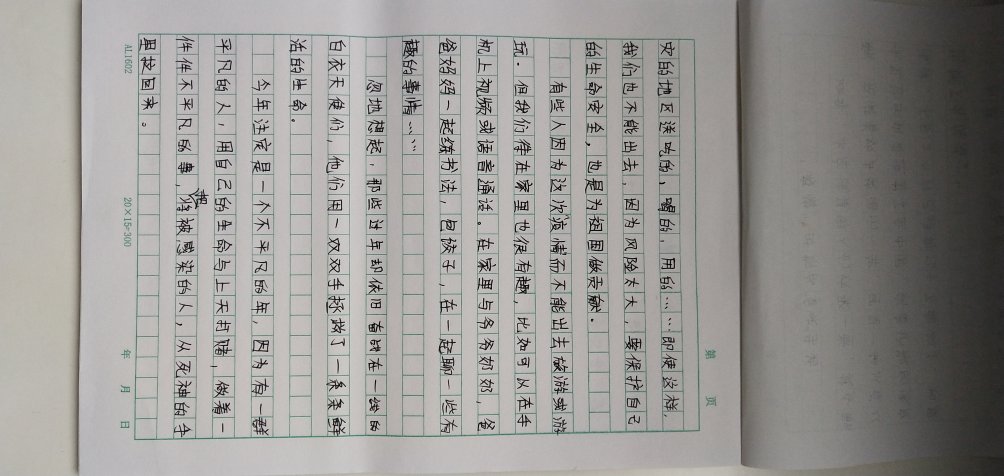 第 页
灾的地区送吃的，喝的，用的……即使这样，
我们也不能出去，因为风险太大，要保护自己
的生命安全，也是为祖国做贡献。
有些人因为这次疫情而不能出去旅游或游
玩．但我们待在家里也很有趣，比如可以在手
机上视频或语音通话。在家里与爷爷奶奶，爸
爸妈妈一起练书法，包饺子，在一起聊一些有
趣的事情……
忽地想起，那些过年却依旧奋战在一线的
白衣天使们，他们用一双双手拯救了一条条鲜
活的生命。
今年注定是一个不平凡的年，因为有一群
平凡的人，用自己的生命与上天打赌，做着一
件件不平凡的事，把将被感染的人，从死神的手
里拉回来。
AL1602 20×15=300 年 月 日